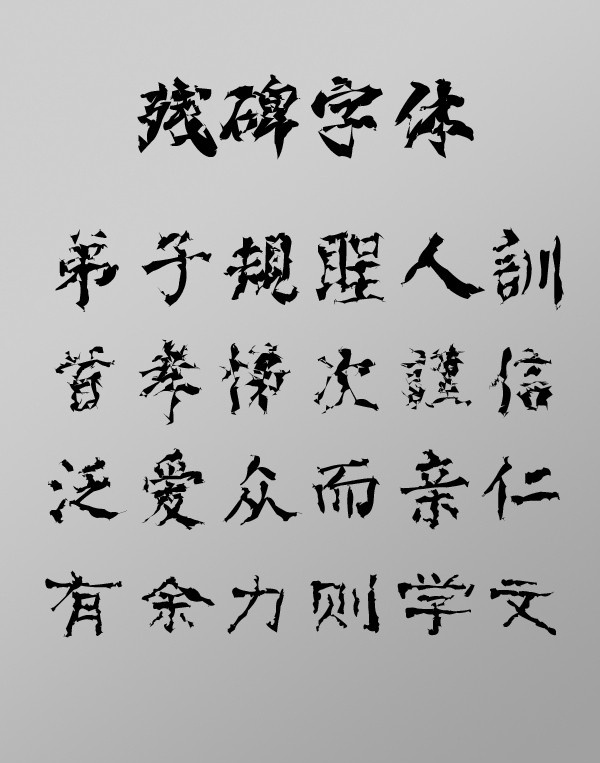 残碑字体
弟子規聖人訓
首孝悌次謹信
泛爱众而亲仁
有余力则学文